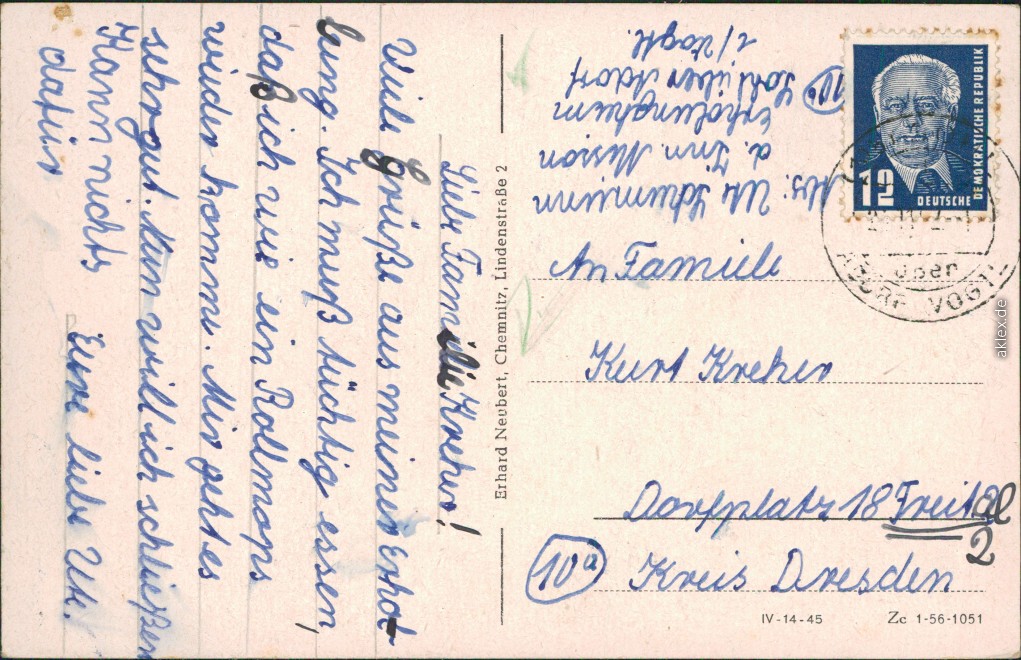 Liebe Familie Kreher!
Viele Grüße aus meiner Erhol-
ung. Ich muß tüchtig essen,
daß ich wie ein Rollmops
wieder komme. Mir geht es
sehr gut. Nun will ich schließen
Kann nichts
dafür
Eure liebe Ute.
Erhard Neubert, Chemnitz, Lindenstraße 2
Abs: Ute Schumann
d. Inn. Mission
Erholungheim
Sohl über Adorf
i/Vogtl.
10a
12
DEUTSCHE
DEMOKRATISCHE REPUBLIK
über
ADORF VOGTL
An Familie
Kurt Kreher
Dorfplatz 18 Freital
2
10a
Kreis Dresden
IV-14-45
Zc 1-56-1051
aklex.de